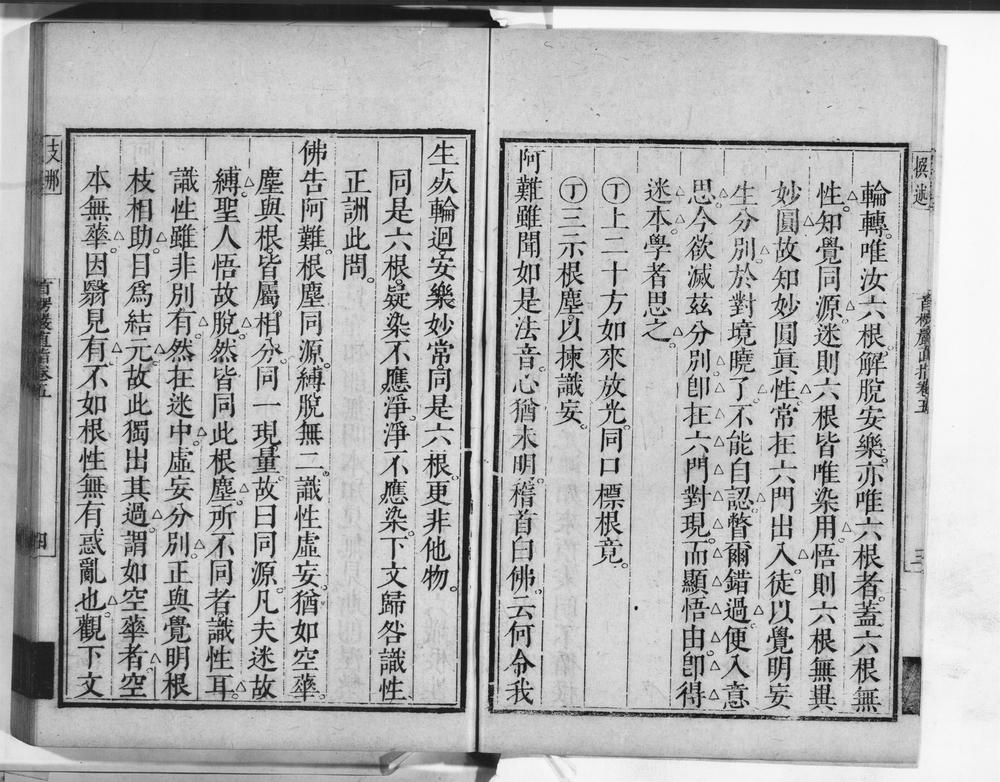 輪轉唯汝六根解脫安樂亦唯六根者葢六根無
性知覺同源迷則六根皆唯染用悟則六根無異
妙圓故知妙圓眞性常在六門出入徒以覺明妄
生分別於對境曉了不能自認瞥爾錯過便入意
思今欲滅茲分別卽在六門對現而顯悟由卽得
迷本學者思之
丁上二十方如來放光同口標根竟
丁三三示根塵以揀識妄
阿難雖聞如是法音心猶未明稽首白佛云何令我
生死輪迴安樂妙常同是六根更非他物
同是六根疑染不應淨淨不應染下文歸咎識性
正詶此問
佛告阿難根塵同源縛脫無二識性虛妄猶如空華
塵與根皆屬相分同一現量故曰同源凡夫迷故
縛聖人悟故脫然皆同此根塵所不同者識性耳
識性雖非別有然在迷中虛妄分別正與覺明根
枝相助目爲結元故此獨出其過謂如空華者空
本無華因翳見有不如根性無有惑亂也觀下文
首楞嚴直指卷五
三
支那
首楞嚴直指卷五
四